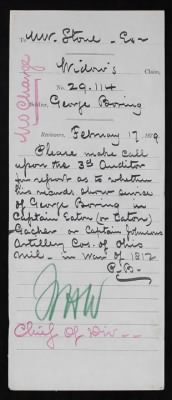 To W. W. Stone - Esq -
No Charge
Widow's Claim,
No. 29.114
Soldier, George Boring
Reviewer, February 17, 1879
Please make Call
upon the 3rd Auditor
for report as to whether
his records show service
of George Boring in
Captain Eaton (or Caton)
or Captain Johnsons
Artillery Cos. of Ohio
Mil. - in War of 1812
Chief of Div -